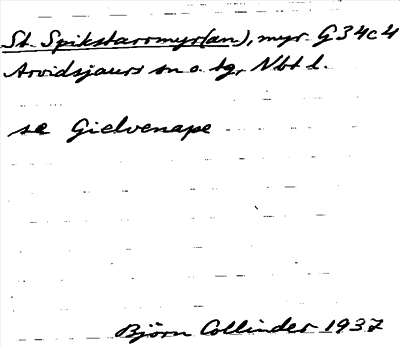 St. Spikstarrmyr(an), myr. G34c4
Arvidsjaurs sn o. tg, Nbt l.
se Gielvenape
Björn Collinder 1937